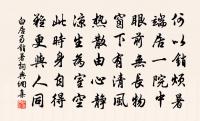 何以銷煩暑
端居一院中
眼前無長物
窗下有清風
熱散由心靜
涼生為室空
此時身自得
難更與人同
白居易銷暑詞典網集